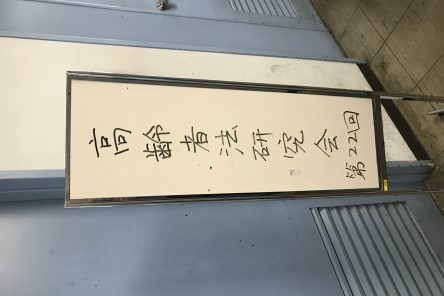 高齢者法研究会
第22回